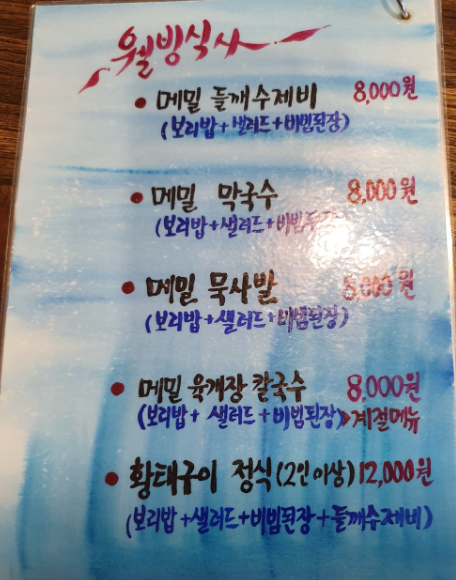 웰빙식사
• 메밀 들깨수제비 8,000원
(보리밥+샐러드+비빔된장)
• 메밀 막국수 8,000원
(보리밥+샐러드+비빔된장)
• 메밀 묵사발 8,000원
(보리밥+샐러드+비빔된장)
• 메밀 육개장 칼국수 8,000원
(보리밥+ 샐러드+비빔된장)>계절메뉴
• 황태구이 정식(2인이상) 12,000원
(보리밥+샐러드+비빔된장+들깨수제비)